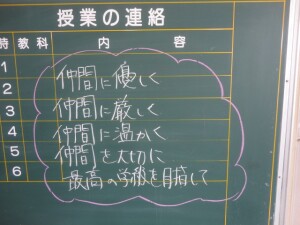 授業の連絡
時 教科 内容
1
2
3
4
5
6
仲間に優しく
仲間に厳しく
仲間に温かく
仲間を大切に
最高の学級を目指して